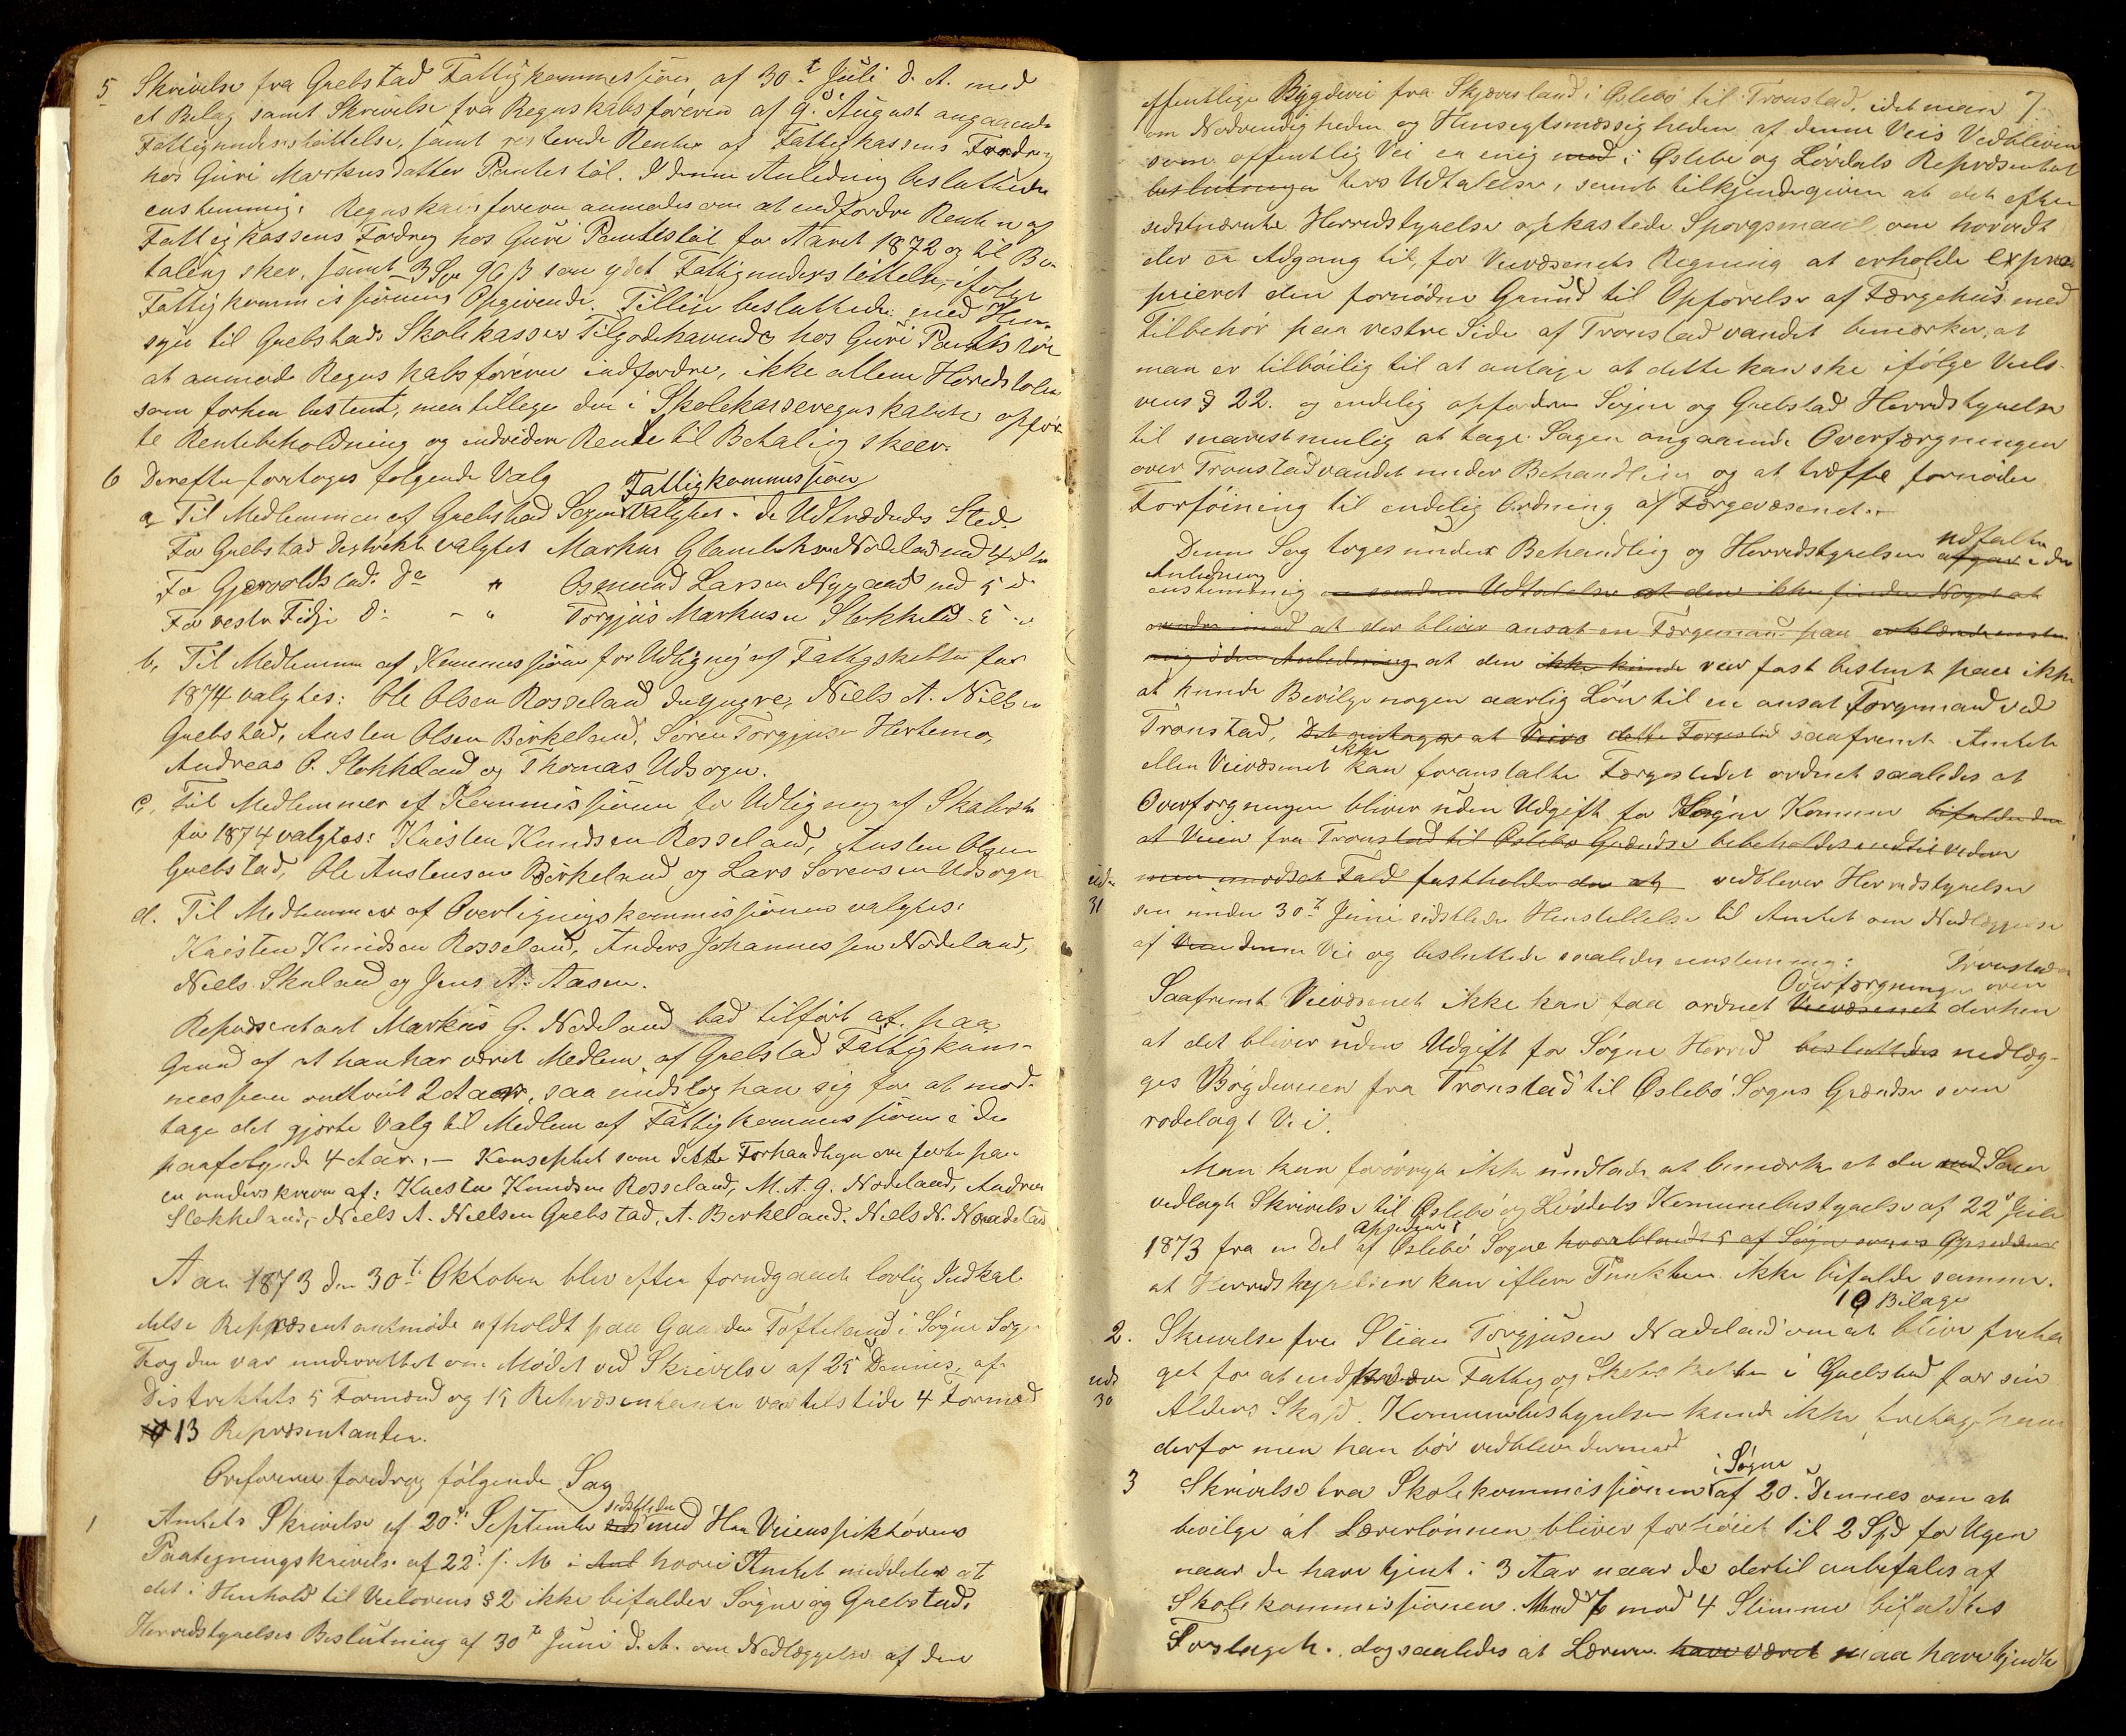 5 Skrivelse fra Grebstad Fattigkommesjon af 30.t Juli d. A. med
et Bilag samt Skrivelse fra Regnskabsføreren af 9.d August angaaende
Fattigunderstøttelse, samt resterende Renter af Fattigkassens Fordring
hos Guri Markusdatter Pantestøl. I denne Anledning besluttedes
enstemmig: Regnskabsføreren anmodes om at indfordre Renten af
Fattigkassens Fordring hos Guri Pantestøl for Aaret 1872 og til Be-
taling skeer, samt 3 Spd 96 ß som ydet Fattigunderstøttelse, ifølge
Fattigkommissionens Opgivende. Tillige besluttedes med Hen-
syn til Grebstads Skolekasses Tilgodehavende hos Guri Pantestøl
at anmode Regnskabsføreren indfordre, ikke allene Hovedstolen
som forhen bestemt, men tillige den i Skolekasseregnskabet opfør-
te Rentebeholdning og endvidere Rente til Betaling skeer.
6 Derefter foretoges følgende Valg
Fattigkommissjon
a, Til Medlemmer af Grebstad Sogns valgtes i de Udtrædendes Sted.
For Grebstad Distrikt valgtes Markus G Nodeland med 4 St
For Gjervoldstad do " Osmund Larsen Nygaard med 5 d
For vestre Fidje d: - " Torgjus Markusen Stokkeland - 5 -
b, Til Medlemmer af Kommissjonen for Udligning af Fattigskatten for
1874 valgtes: Ole Olsen Rosseland den yngre, Niels A. Nielsen
Grebstad, Austen Olsen Birkeland, Søren Torgjusen Hertemo,
Andreas O. Stokkeland og Thomas Udsogn.
c, Til Medlemmer af Kommissjonen for Udligning af Skoleskat
for 1874 valgtes: Kristen Knudsen Rosseland, Austen Olsen
Grebstad, Ole Austensen Birkeland og Lars Sørensen Udsogn
d. Til Medlemmer af Overligningskommissionen valgtes:
Kristen Knudsen Rosseland, Anders Johannessen Nodeland,
Niels Skuland og Jens A. Aasen.
Repræsentant Markus G. Nodeland bad tilført at paa
Grund af at han har været Medlem af Grebstad Fattigkom-
messjon omtrent 2 Aar, saa undslog han sig for at mod-
tage det gjorte Valg til Medlem af Fattigkommissjonen i de
paafølgende 4 Aar. — Konseptet som dette Forhandlinger ere førte paa
er underskreven af: Kristen Knudsen Rosseland, M. A. G. Nodeland, Andreas
Stokkeland, Niels A. Nielsen Grebstad, A. Birkeland. Niels N. Nodeland
Aar 1873 den 30.t Oktober blev efter forudgaaende lovlig Indkal-
delse Repræsentantmøde afholdt paa Gaarden Tofteland i Søgne Sogn
Fogden var underrettet om Mødet ved Skrivelse af 25 Dennes, af
Distriktets 5 Formænd og 15 Repræsentanter var tilstede 4 Formænd
og 13 Repræsentanter.
Ordføreren foredrog følgende Sag
sidstleden
1 Amtets Skrivelse af 20.de September med Hr Veiinspektørens
Paategningskrivelse af 22.d s. M. i hvori Amtet meddeler at
det i Henhold til Veilovens § 2 ikke bifalder Søgne og Grebstad.
Herredstyrelses Beslutning af 30.te Juni d. A. om Nedlæggelse af den
7
offentlige Bygdevei fra Skjævesland i Øslebø til Tronstad, idet man
om Nødvendigheden og Hensigtsmæssigheden af denne Veis Vedbliven
som offentlig Vei er enig med i Øslebø og Løvdals Repræsentan
beslutninger ters Udtalelse, samt tilkjendegiven at det efter
sidstnævnte Herredstyrelse opkastede Spørgsmaal om hvorvidt
der er Adgang til, for Veivæsenets Regning at erholde expro-
prieret den fornødne Grund til Opførelse af Færgehus med
Tilbehør paa vestre Side af Tronstadvandet bemærker, at
man er tilbøilig til at antage at dette kan ske ifølge Veilo-
vens § 22. og endelig opfordrer Søgne og Grebstad Herredstyrelse
til snarest mulig at tage Sagen angaaende Overfærgningen
over Tronstadvandet under Behandling og at træffe fornøden
Forføining til endelig Ordning af Færgevæsenet.
udtaler
Denne Sag toges under Behandling og Herredstyrelsen afgav i den
Anledning
enstemmig en saadan Udtalelse at den ikke finder Noget at
erindre imod at der bliver ansat en Færgemand paa erklærede enstem
mig i den Anledning at den ikke kunde var fast bestemt paa ikke
at kunde Bevilge nogen aarlig Løn til en ansat Færgemand ved
Tronstad, Det antages at Veivæ dette Færgested saafremt Amtet
ikke
eller Veivæsenet kan foranstalte Færgestedet ordnet saaledes at
Overfærgningen bliver uden Udgift for Søgne Komune bifalder den
at Veien fra Tronstad til Øslebø Grændse bebeholdes indtil videre
men i modsat Fald fastholder den at vedbliver Herredstyrelsen
31
sin under 30.te Juni sidstleden Henstillelse til Amtet om Nedlæggelse
af denne Vei og besluttede saaledes enstemmig:
Overfærgningen over Tronstad
Saafremt Veivæsenet ikke kan faa ordnet Veivæsenet derhen
at det bliver uden Udgift for Søgne Herred besluttedes nedlæg-
ges Bygdeveien fra Tronstad til Øslebø Sogns Grændse som
rodelagt Vei.
Man kan forøvrigt ikke undlade at bemærke at den med Sagen
vedlagte Skrivelse til Øslebø og Løvdals Komunebestyrelse af 22.de Juli
1873 fra en Del af Øslebø Sogne hvoriblandt 5 af Søgne sogns Opsiddere
at Herredstyrelsen kan iflere Punkter ikke bifalde samme.
10 Bilage
2. Skrivelse fra Stian Torgjusen Nodeland om at blive frita
get for at indkræve Fattig og Skoleskatten i Grebstad for sin
30
Alders Skyld. Komunebestyrelsen kunde ikke fritage ham
derfor men han bør vedblive dermed
i Søgne
3 Skrivelse fra Skolekommissjonen af 20. Dennes om at
bevilge at Lærerlønnen bliver forhøiet til 2 Spd for Ugen
naar de have tjent i 3 Aar naar de dertil anbefales af
Skolekommissjonen. Med mod 4 Stimmer bifaldtes
Forslaget. dog saaledes at Læreren have været maa have tjent